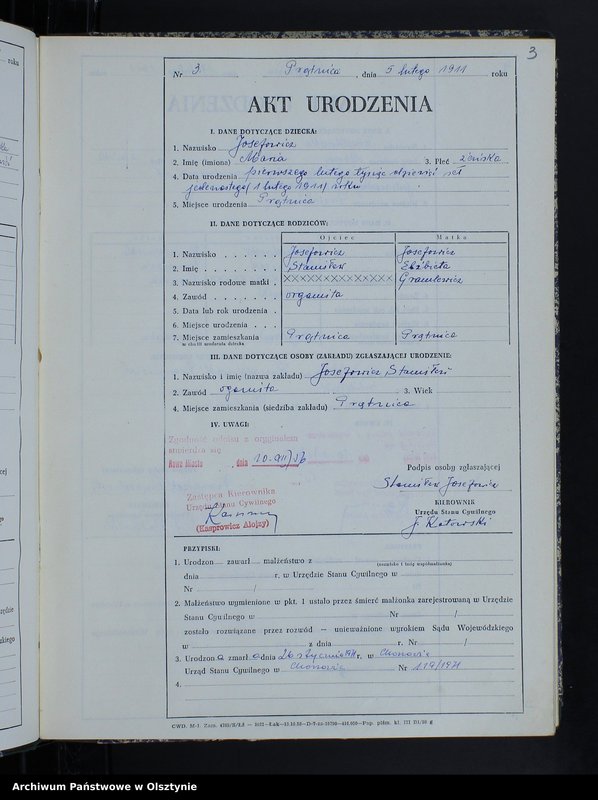 3
Nr 3. Prątnica, dnia 5 lutego 1911 roku
AKT URODZENIA
I. DANE DOTYCZĄCE DZIECKA:
1. Nazwisko Josefowicz
2. Imię (imiona) Maria 3. Płeć żeńska
4. Data urodzenia pierwszego lutego tysiąc dziewięć set
jedenastego (1 lutego 1911) roku
5. Miejsce urodzenia Prątnica
II. DANE DOTYCZĄCE RODZICÓW:
Ojciec Matka
1. Nazwisko Josefowicz Josefowicz
2. Imię Stanisław Elżbieta
3. Nazwisko rodowe matki XXXXXXXXXXXX
4. Zawód organista
5. Data lub rok urodzenia
6. Miejsce urodzenia
7. Miejsce zamieszkania Prątnica Prątnica
w chwili urodzenia dziecka
III. DANE DOTYCZĄCE OSOBY (ZAKŁADU) ZGŁASZAJĄCEJ URODZENIE:
1. Nazwisko i imię (nazwa zakładu) Josefowicz Stanisław
2. Zawód organista 3. Wiek
4. Miejsce zamieszkania (siedziba zakładu) Prątnica
IV. UWAGI:
Zgodność odpisu z oryginałem
stwierdza się
dnia
Podpis osoby zgłaszającej
Stanisław Josefowicz
Zastępca Kierownika
Urzędu Stanu Cywilnego
(Kasprowicz Alojzy)
KIEROWNIK
Urzędu Stanu Cywilnego
PRZYPISKI:
1. Urodzon zawarł małżeństwo z
(nazwisko i imię współmałżonka)
dnia r. w Urzędzie Stanu Cywilnego w
Nr /
2. Małżeństwo wymienione w pkt. 1 ustało przez śmierć małżonka zarejestrowaną w Urzędzie
Stanu Cywilnego w Nr /
zostało rozwiązane przez rozwód — unieważnione wyrokiem Sądu Wojewódzkiego
w z dnia r. Nr /
3. Urodzona zmarła dnia 26 stycznia r. w
Urząd Stanu Cywilnego w Nr 119/1971
4.
Archiwum Państwowe w Olsztynie